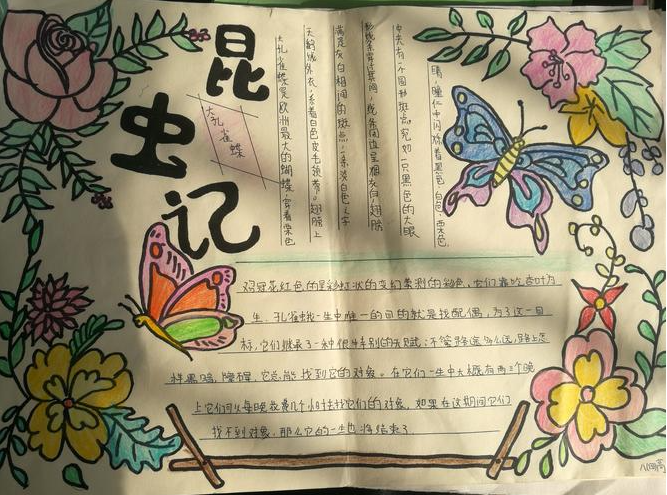 昆虫记
大孔雀蝶
大孔雀蝶是欧洲最大的蝴蝶,穿着栗色
天鹅绒外衣,系着白色皮毛领带。翅膀上
满是灰白相间的斑点,一条淡白色之字
形线条穿过其间,线条周边呈烟灰白,翅膀
中央有一个圆形斑点,宛如一只黑色的大眼
睛,瞳仁中闪烁着黑色,白色,栗色,
鸡冠花红色的呈彩虹状的变幻莫测的颜色。它们靠吃杏叶为
生。孔雀蛾一生中唯一的目的就是找配偶,为了这一目
标,它们继承了一种很特别的天赋:不管路途多么远,路上怎
样黑暗,障碍,它总能找到它的对象。在它们一生中大概有两三个晚
上它们可以每晚花费几个小时去找它们的对象。如果在这期间它们
找不到对象,那么它的一生也将结束了